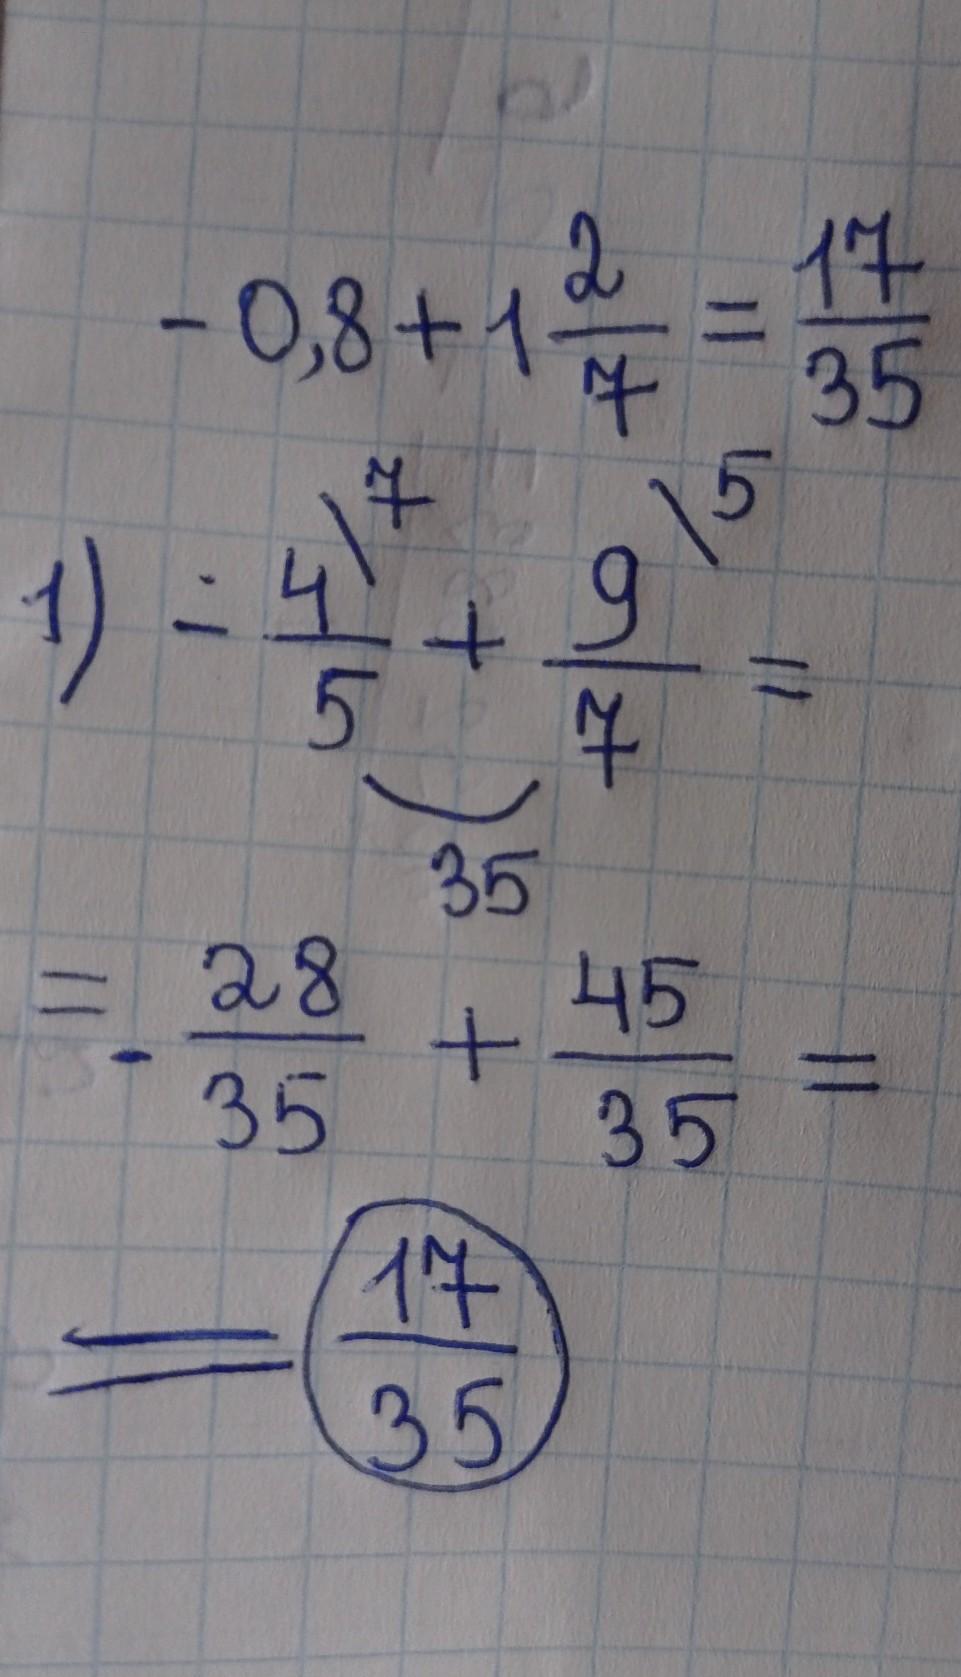 -0,8+1 2/7 = 17/35
1) - 4\7/5 + 9\5/7 =
35
= - 28/35 + 45/35 =
= 17/35